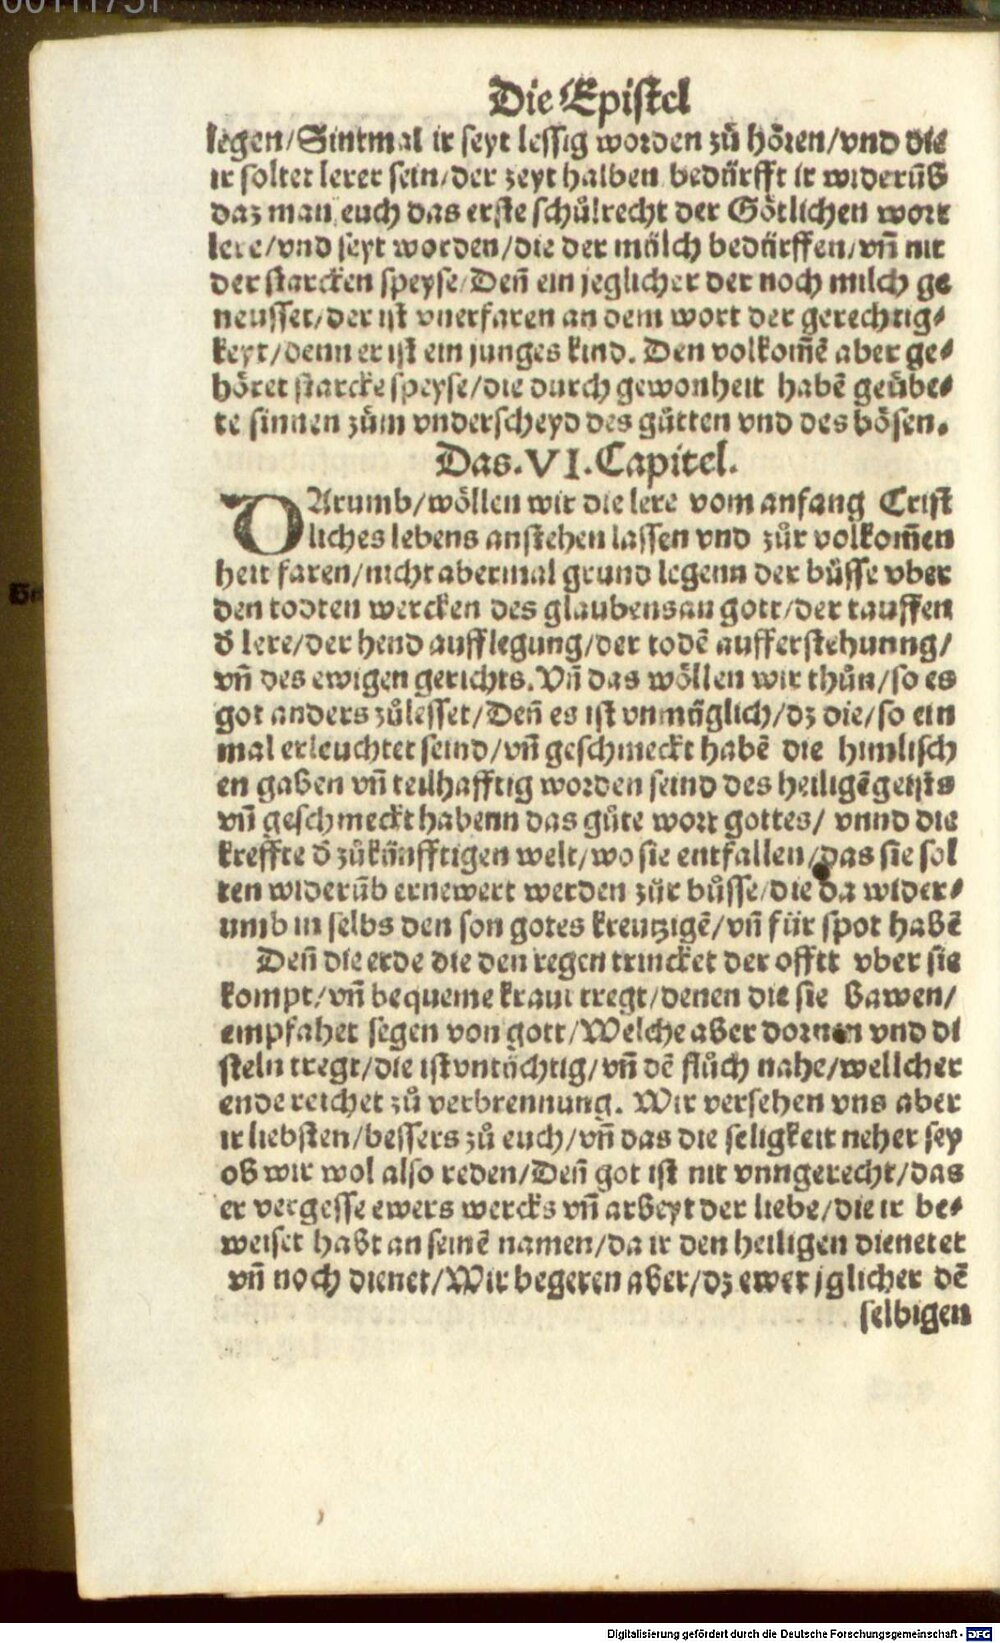 Die Epistel
legen/Sintmal ir seyt lessig worden zů hören/vnd die
ir soltet lerer sein/der zeyt halben bedürfft ir widerũb
daz man euch das erste schůlrecht der Götlichen wort
lere/vnd seyt worden/die der mülch bedürffen/vñ nit
der starcken speyse/Deñ ein jeglicher der noch milch ge
neusset/der ist vnerfaren an dem wort der gerechtig⸗
keyt/denn er ist ein junges kind. Den volkom̃ẽ aber ge⸗
höret starcke speyse/die durch gewonheit habẽ geübe⸗
te sinnen zům vnderscheyd des gůtten vnd des bösen.
Das.VI.Capitel.
DArumb/wöllen wir die lere vom anfang Crist
liches lebens anstehen lassen vnd zůr volkom̃en
heit faren/nicht abermal grund legenn der bůsse vber
den todten wercken des glaubens an gott/der tauffen
d̄ lere/der hend aufflegung/der todẽ aufferstehunng/
vñ des ewigen gerichts.Vñ das wöllen wir thůn/so es
got anders zůlesset/Deñ es ist vnmüglich/dz die/so ein
mal erleuchtet seind/vñ geschmeckt habẽ die himlisch
en gaben vñ teilhafftig worden seind des heiligẽ geists
vñ geschmeckt habenn das gůte wort gottes/ vnnd die
kreffte d̄ zůkünfftigen welt/wo sie entfallen/das sie sol
ten widerũb ernewert werden zůr bůsse/die da wider⸗
umb in selbs den son gotes kreutzigẽ/vñ für spot habẽ
Deñ die erde die den regen trincket der offtt vber sie
kompt/vñ bequeme kraut tregt/denen die sie bawen/
empfahet segen von gott/Welche aber dornen vnd di
steln tregt/die ist vntüchtig/vñ dẽ flůch nahe/wellcher
ende reichet zů verbrennung. Wir versehen vns aber
ir liebsten/bessers zů euch/vñ das die seligkeit neher sey
ob wir wol also reden/Deñ got ist nit vnngerecht/das
er vergesse ewers wercks vñ arbeyt der liebe/die ir be⸗
weiset habt an seinẽ namen/da ir den heiligen dienetet
vñ noch dienet/Wir begeren aber/dz ewer jglicher dẽ
selbigen
Digitalisierung gefördert durch die Deutsche Forschungsgemeinschaft - DFG